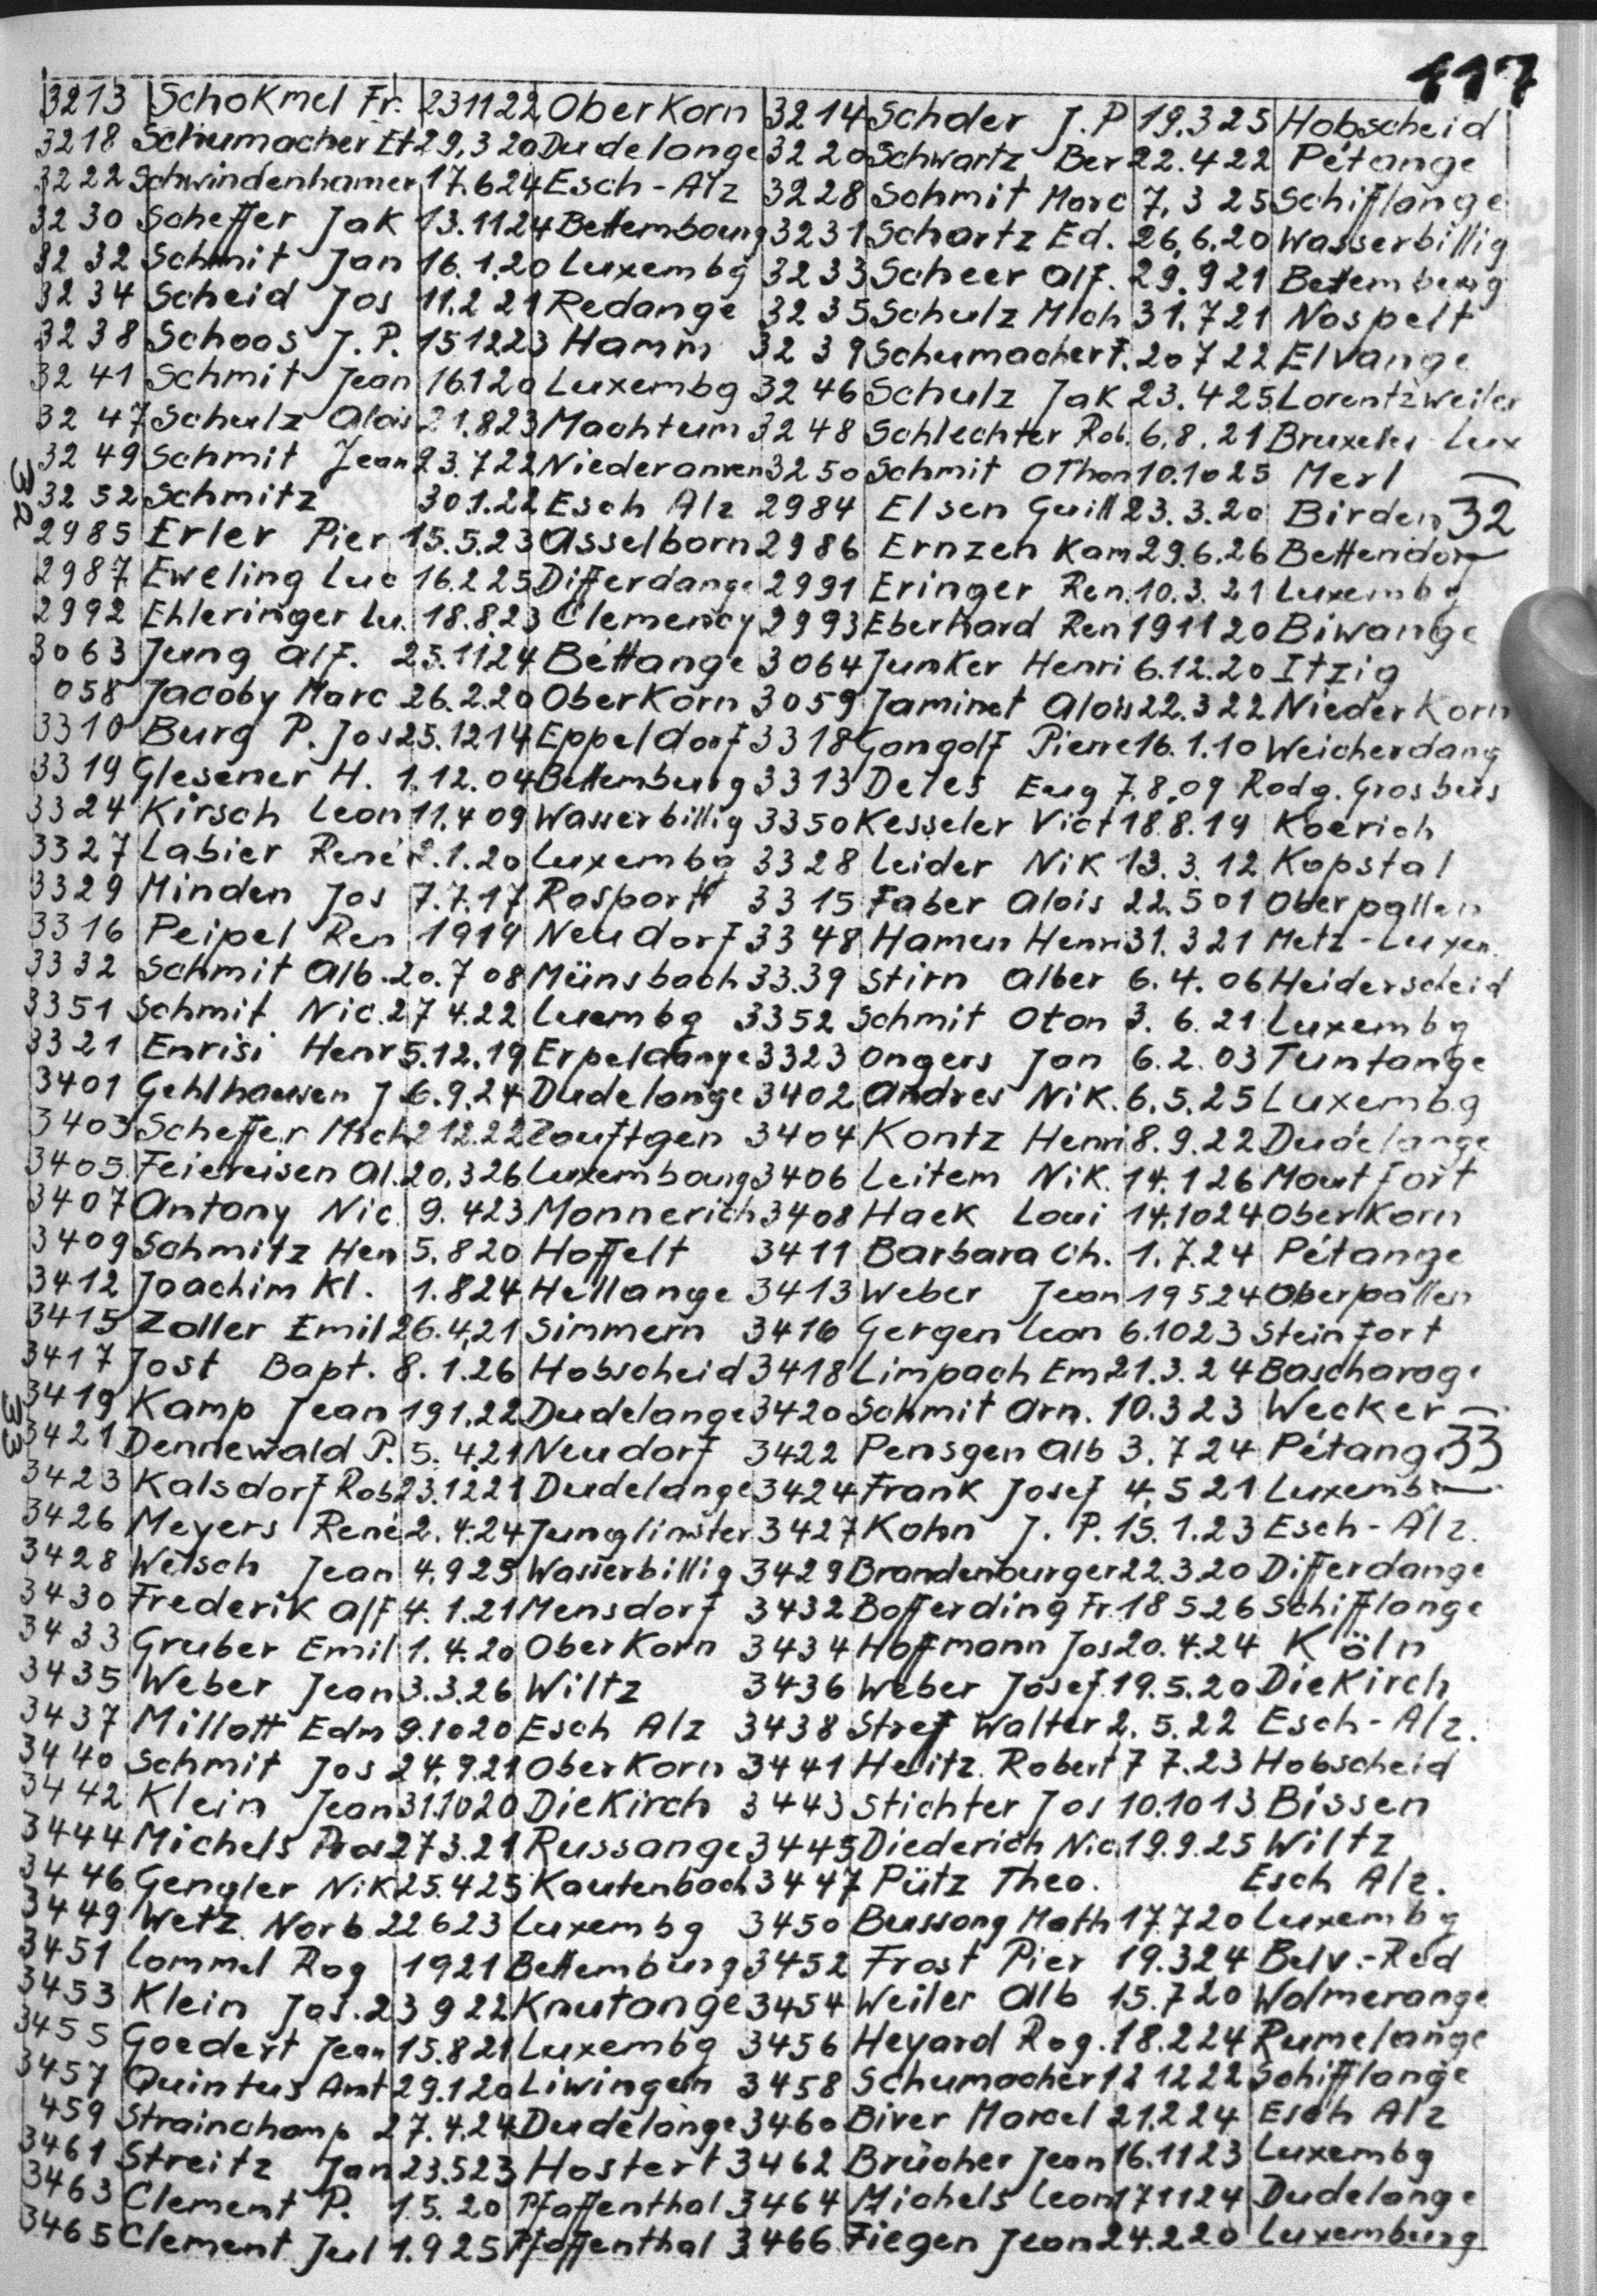 117
3213 Schokmel Fr. 231122 Oberkorn 3214 Schder J.P 19.325 Hobscheid
3218 Schumacher Et 29.320 Dudelange 3220 Schwartz Ber 22.422 Pétange
3222 Schwindenhamer 17.624 Esch-Alz 3228 Schmit Marc 7.325 Schifflange
3230 Scheffer Jak 13.1124 Bettembourg 3231 Schartz Ed. 26.6.20 Wasserbillig
3232 Schmit Jan 16.1.20 Luxembg 3233 Scheer Alf. 29.921 Bettemberg
3234 Scheid Jos 11.221 Redange 3235 Schulz Mich 31.721 Nospelt
3238 Schoos J.P. 151223 Hamm 3239 Schumacher F. 20722 Elvange
3241 Schmit Jean 16.120 Luxembg 3246 Schulz Jak 23.425 Lorentzweiler
3247 Schulz Alois 21.823 Machtum 3248 Schlechter Rob. 6.8.21 Bruxelles Lux
3249 Schmit Jean 23.722 Niederanven 3250 Schmit Othon 10.1025 Merl
32 3252 Schmitz 301.22 Esch Alz 2984 Elsen Guill 23.3.20 Birden 32
2985 Erler Pier 15.5.23 Asselborn 2986 Ernzen Kam 29.6.26 Bettendorf
2987 Eweling Luc 16.225 Differdange 2991 Eringer Ren. 10.3.21 Luxembg
2992 Ehleringer Lu. 18.823 Clemency 2993 Eberhard Ren 191120 Biwange
3063 Jung Alf. 25.1124 Bettange 3064 Junker Henri 6.12.20 Itzig
058 Jacoby Marc 26.2.20 Oberkorn 3059 Jaminet Alois 22.322 Niederkorn
3310 Burg P. Jos 25.1214 Eppeldorf 3318 Gangolf Pierre 16.1.10 Weicherdang
3319 Glesener H. 1.12.04 Bettemburg 3313 Deles Eug 7.8.09 Rodg. Grosbus
3324 Kirsch Leon 11.409 Wasserbillig 3350 Kesseler Vict 18.8.19 Koerich
3327 Labier René 2.1.20 Luxembg 3328 Leider Nik 13.3.12 Kopstal
3329 Minden Jos 7.7.17 Rosportt 3315 Faber Alois 22.501 Oberpallen
3316 Peipel Ren 1919 Neudorf 3348 Hamen Henri 31.321 Metz-Luxem
3332 Schmit Alb. 20.708 Münsbach 33.39 Stirn Alber 6.4.06 Heiderscheid
3351 Schmit Nic. 27 4.22 Luembg 3352 Schmit Oton 3.6.21 Luxembg
3321 Enrisi Henr 5.12.19 Erpeldange 3323 Ongers Jan 6.2.03 Tuntange
3401 Gehlhausen J 6.9.24 Dudelange 3402 Andres Nik. 6.5.25 Luxembg
3403 Scheffer Mich 212.22 Zouftgen 3404 Kontz Henri 8.9.22 Dudelange
3405 Feiereisen Al. 20.326 Luxembourg 3406 Leitem Nik. 14.126 Moutfort
3407 Antony Nic 9.423 Monnerich 3408 Haek Loui 14.1024 Oberkorn
3409 Schmitz Hen 5.820 Hoffelt 3411 Barbara Ch. 1.7.24 Pétange
3412 Joachim Kl. 1.824 Hellange 3413 Weber Jean 19524 Oberpallen
3415 Zoller Emil 26.4.21 Simmern 3416 Gergen Leon 6.1023 Steinfort
3417 Jost Bapt. 8.1.26 Hobscheid 3418 Limpach Em 21.3.24 Bascharage
3419 Kamp Jean 191.22 Dudelange 3420 Schmit Arn. 10.323 Wecker
33 3421 Dennewald P. 5.421 Neudorf 3422 Pensgen Alb 3.724 Pétang 33
3423 Kalsdorf Rob 23.1221 Dudelange 3424 Frank Josef 4.521 Luxemb
3426 Meyers René 2.4.24 Junglinster 3427 Kohn J.P. 15.1.23 Esch-Alz.
3428 Welsch Jean 4.925 Wasserbillig 3429 Brandenburger 22.3.20 Differdange
3430 Frederik Alf 4.1.21 Mensdorf 3432 Bofferding Fr. 18526 Schifflange
3433 Gruber Emil 1.4.20 Oberkorn 3434 Hoffmann Jos 20.4.24 Köln
3435 Weber Jean 3.3.26 Wiltz 3436 Weber Josef 19.5.20 Diekirch
3437 Millott Edm 9.1020 Esch Alz 3438 Stref Walter 2.5.22 Esch-Alz.
3440 Schmit Jos 24.9.21 Oberkorn 3441 Heitz Robert 7 7.23 Hobscheid
3442 Klein Jean 31.1020 Diekirch 3443 Stichter Jos 10.1013 Bissen
3444 Michels Pros 273.21 Russange 3445 Diederich Nic 19.9.25 Wiltz
3446 Gengler Nik 25.425 Kautenbach 3447 Pütz Theo. Esch Alz.
3449 Wetz Norb 22623 Luxembg 3450 Bussong Math 17.720 Luxembg
3451 Lommel Rog 1921 Bettemburg 3452 Frost Pier 19.324 Belv.-Red
3453 Klein Jos. 23922 Knutange 3454 Weiler Alb 15.720 Wolmerange
3455 Goedert Jean 15.821 Luxembg 3456 Heyard Rog. 18.224 Rumelange
3457 Quintus Ant 29.120 Liwingen 3458 Schumacher 121222 Schifflange
459 Strainchamp 27.4.24 Dudelange 3460 Biver Marcel 21.224 Esch Alz
3461 Streitz Jan 23.523 Hostert 3462 Brücher Jean 16.1123 Luxembg
3463 Clement P. 1.5.20 Pfaffenthal 3464 Michels Leon 171124 Dudelange
3465 Clement Jul 1.925 Pfaffenthal 3466 Fiegen Jean 24.220 Luxemburg